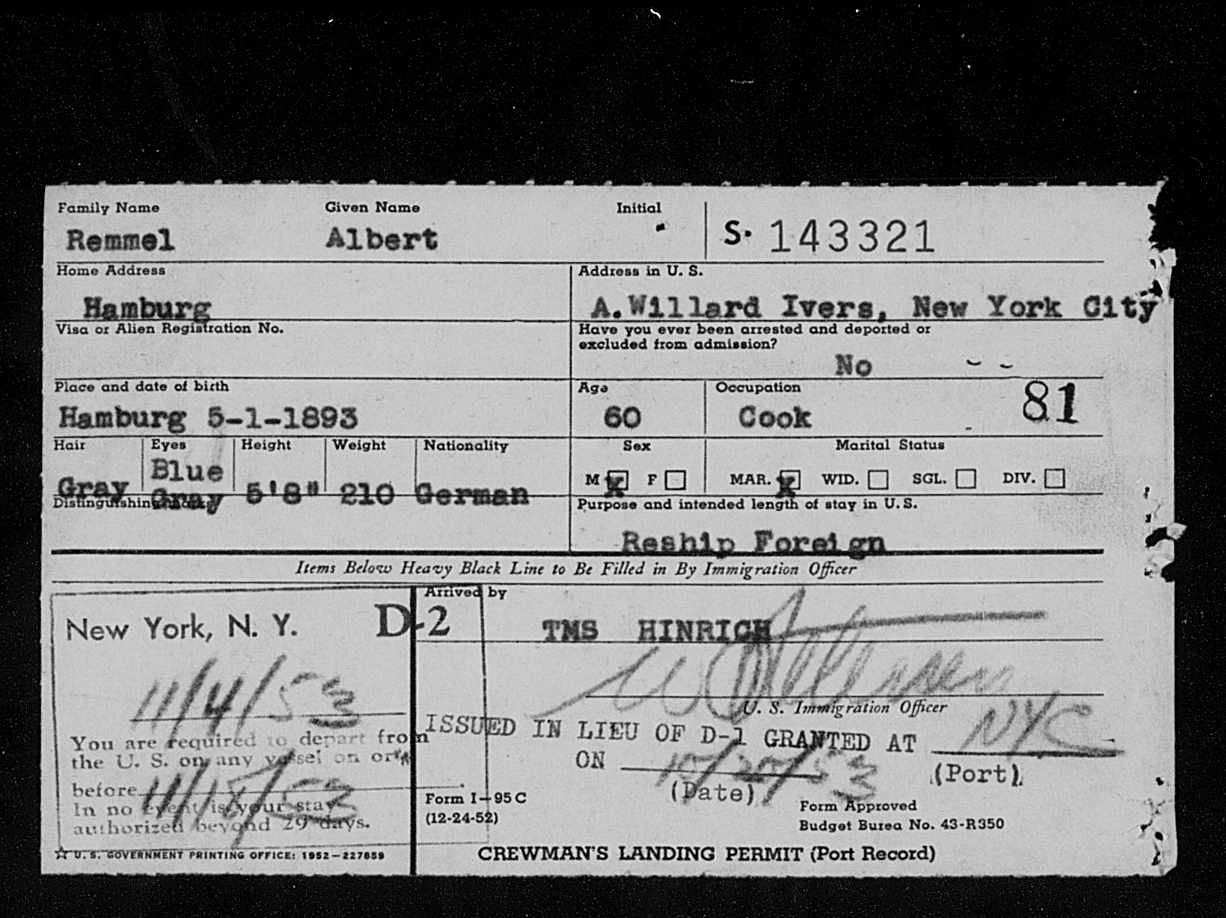 Family Name Given Name Initial
Remmel Albert S. 143321
Home Address Address in U. S.
Hamburg A.Willard Ivers, New York City
Visa or Alien Registration No. Have you ever been arrested and deported or
excluded from admission?
No
Place and date of birth Age Occupation
Hamburg 5-1-1893 60 Cook 81
Hair Eyes Height Weight Nationality Sex Marital Status
Blue
Gray Gray 5'8" 210 German M X F MAR. X WID. SGL. DIV.
Distinguishing Purpose and intended length of stay in U. S.
Reship Foreign
Items Below Heavy Black Line to Be Filled in By Immigration Officer
Arrived by
New York, N. Y. D-2 TMS HINRICH
11/4/53
U. S. Immigration Officer
You are required to depart from
the U. S. on any vessel on or
before 11/18/53
In no event is your stay
authorized beyond 29 days.
ISSUED IN LIEU OF D-1 GRANTED AT NYC
(Port)
ON
(Date)
Form I-95 C
(12-24-52)
Form Approved
Budget Burea No. 43-R350
U. S. GOVERNMENT PRINTING OFFICE: 1952-227859
CREWMAN'S LANDING PERMIT (Port Record)